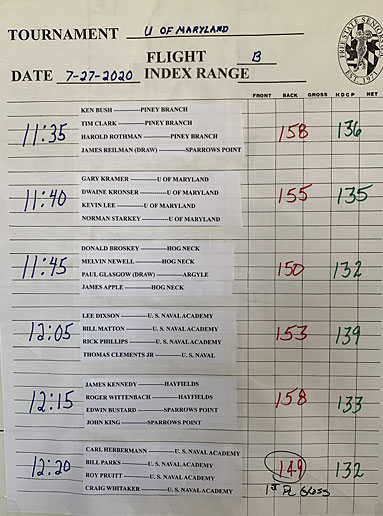 TOURNAMENT U OF MARYLAND
FLIGHT B
DATE 7-27-2020 INDEX RANGE
FREE STATE SENIORS
EST. 1971
FRONT BACK GROSS HDCP NET
KEN BUSH ------------PINEY BRANCH
TIM CLARK ------------PINEY BRANCH
11:35 HAROLD ROTHMAN ------------PINEY BRANCH 158 136
JAMES REILMAN (DRAW) ------------SPARROWS POINT
GARY KRAMER ------------U OF MARYLAND
11:40 DWAINE KRONSER ------------U OF MARYLAND 155 135
KEVIN LEE ------------U OF MARYLAND
NORMAN STARKEY ------------U OF MARYLAND
DONALD BROSKEY ------------HOG NECK
11:45 MELVIN NEWELL ------------HOG NECK 150 132
PAUL GLASGOW (DRAW) ------------ARGYLE
JAMES APPLE ------------HOG NECK
LEE DIXSON ------------U. S. NAVAL ACADEMY
12:05 BILL MATTON ------------U. S. NAVAL ACADEMY 153 139
RICK PHILLIPS ------------U. S. NAVAL ACADEMY
THOMAS CLEMENTS JR ------------U. S. NAVAL
JAMES KENNEDY ------------HAYFIELDS
12:15 ROGER WITTENBACH ------------HAYFIELDS 158 133
EDWIN BUSTARD ------------SPARROWS POINT
JOHN KING ------------SPARROWS POINT
CARL HERBERMANN ------------U. S. NAVAL ACADEMY
12:20 BILL PARKS ------------U. S. NAVAL ACADEMY 149 132
ROY PRUITT ------------U. S. NAVAL ACADEMY
CRAIG WHITAKER ------------U. S. NAVAL ACADEMY 1ST PL GROSS